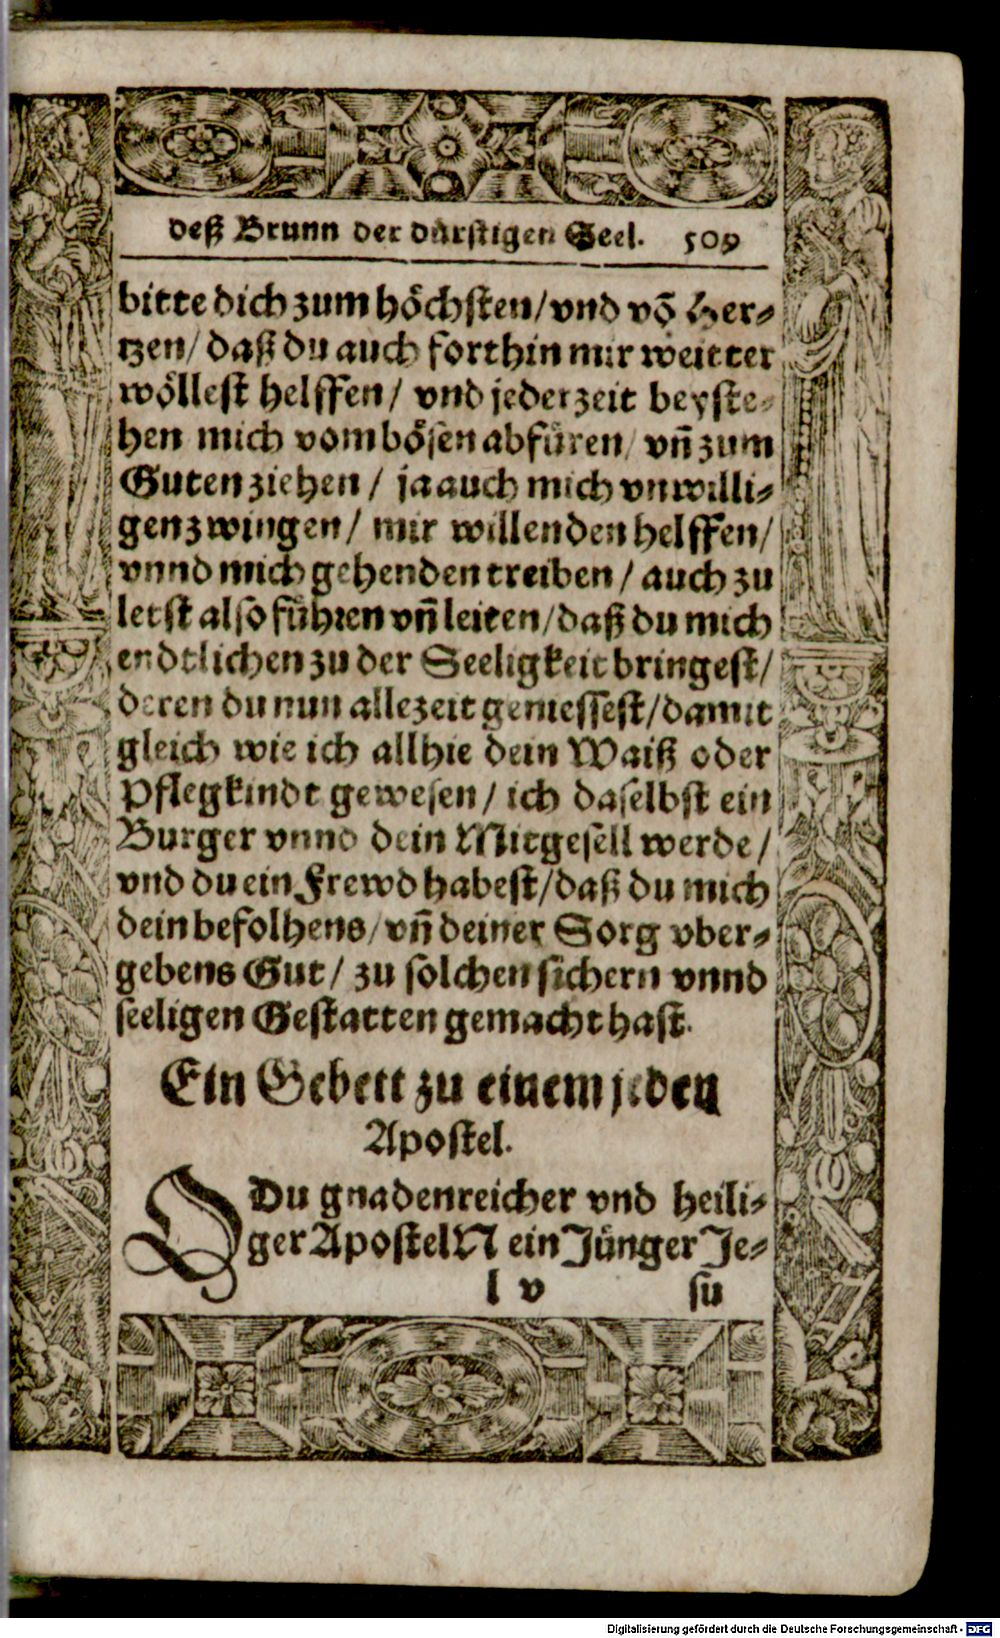 deß Brunn der dürstigen Seel. 509
bitte dich zum höchsten/ vnd võ Her-
tzen/ daß du auch forthin mir weitter
wöllest helffen/ vnd jederzeit beyste-
hen mich vom bösen abfüren/ vñ zum
Guten ziehen/ ja auch mich vnwilli-
gen zwingen/ mir willenden helffen/
vnnd mich gehenden treiben/ auch zu
letst also führen vñ leiten/ daß du mich
endtlichen zu der Seeligkeit bringest/
deren du nun allezeit geniessest/ damit
gleich wie ich allhie dein Waiß oder
Pflegkindt gewesen/ ich daselbst ein
Burger vnnd dein Mitgesell werde/
vnd du ein Frewd habest/ daß du mich
dein befolhens/ vñ deiner Sorg vber-
gebens Gut/ zu solchen sichern vnnd
seeligen Gestatten gemacht hast.
Ein Gebett zu einem jeden
Apostel.
O Du gnadenreicher vnd heili-
ger Apostel N ein Jünger Je-
l v su
Digitalisierung gefördert durch die Deutsche Forschungsgemeinschaft - DFG